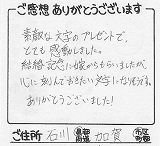 ご感想ありがとうございます
素敵な文字のプレゼントで、
とても感動しました。
結婚記念に嫁からもらいましたが、
心に刻んでおきたい文字になりそうです。
ありがとうございました!
ご住所 石川 都道府県 加賀 市区町村